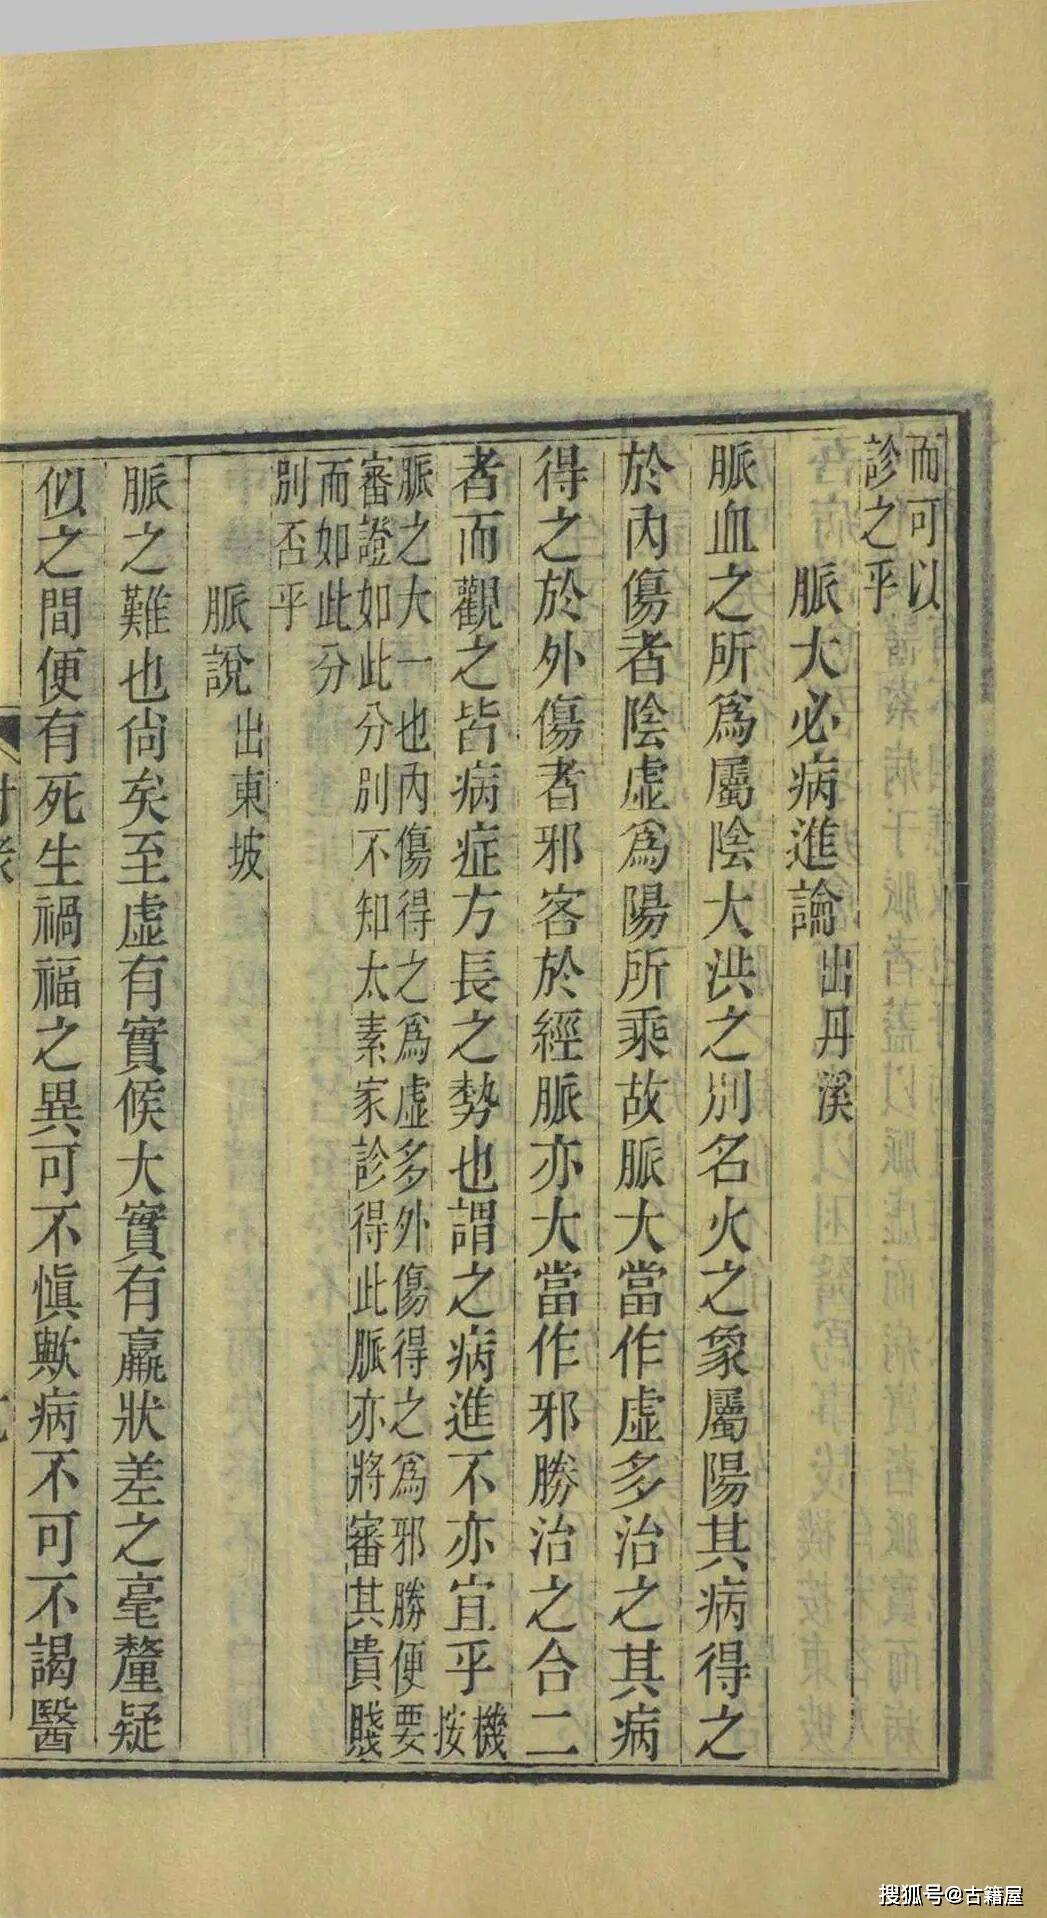 而可以
診之乎
脈大必病進論 出丹溪
脈血之所爲屬陰大洪之別名火之象屬陽其病得之
於內傷者陰虛爲陽所乘故脈大當作虛多治之其病
得之於外傷者邪客於經脈亦大當作邪勝治之合二
者而觀之皆病症方長之勢也謂之病進不亦宜乎 機
按
脈之大一也內傷得之爲虛多外傷得之爲邪勝便要
審證如此分別不知太素家診得此脈亦將審其貴賤
而如此分
別否乎
脈說 出東坡
脈之難也尚矣至虛有實候大實有羸狀差之毫釐疑
似之間便有死生禍福之異可不愼歟病不可不謁醫
搜狐号@古籍屋